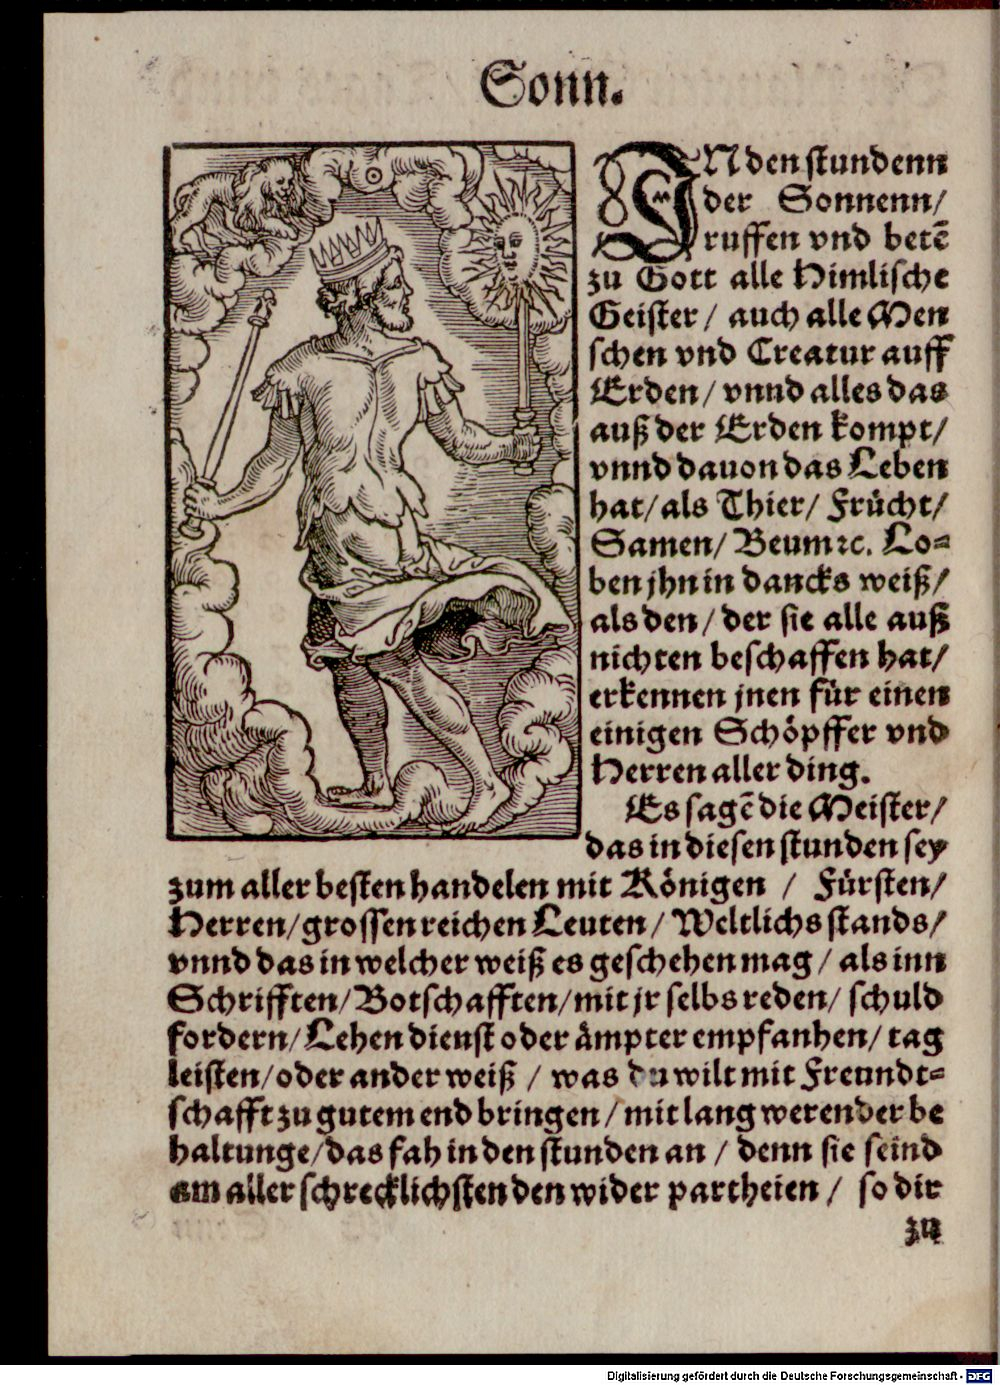 Sonn.
IN den stundenn
der Sonnenn/
ruffen vnd betē
zu Gott alle Himlische
Geister/ auch alle Men
schen vnd Creatur auff
Erden/ vnnd alles das
auß der Erden kompt/
vnnd dauon das Leben
hat/ als Thier/ Frücht/
Samen/ Beum ꝛc. Lo-
ben jhn in dancks weiß/
als den/ der sie alle auß
nichten beschaffen hat/
erkennen jnen für einen
einigen Schöpffer vnd
Herren aller ding.
Es sagē die Meister/
das in diesen stunden sey
zum aller besten handelen mit Königen / Fürsten/
Herren/ grossen reichen Leuten/ Weltlichs stands/
vnnd das in welcher weiß es geschehen mag/ als inn
Schrifften/ Botschafften/ mit jr selbs reden/ schuld
fordern/ Lehen dienst oder ämpter empfanhen/ tag
leisten/ oder ander weiß / was du wilt mit Freundt-
schafft zu gutem end bringen/ mit lang werender be
haltunge/ das fah in den stunden an / denn sie seind
am aller schrecklichsten den wider partheien / so dir
zu
Digitalisierung gefördert durch die Deutsche Forschungsgemeinschaft - DFG